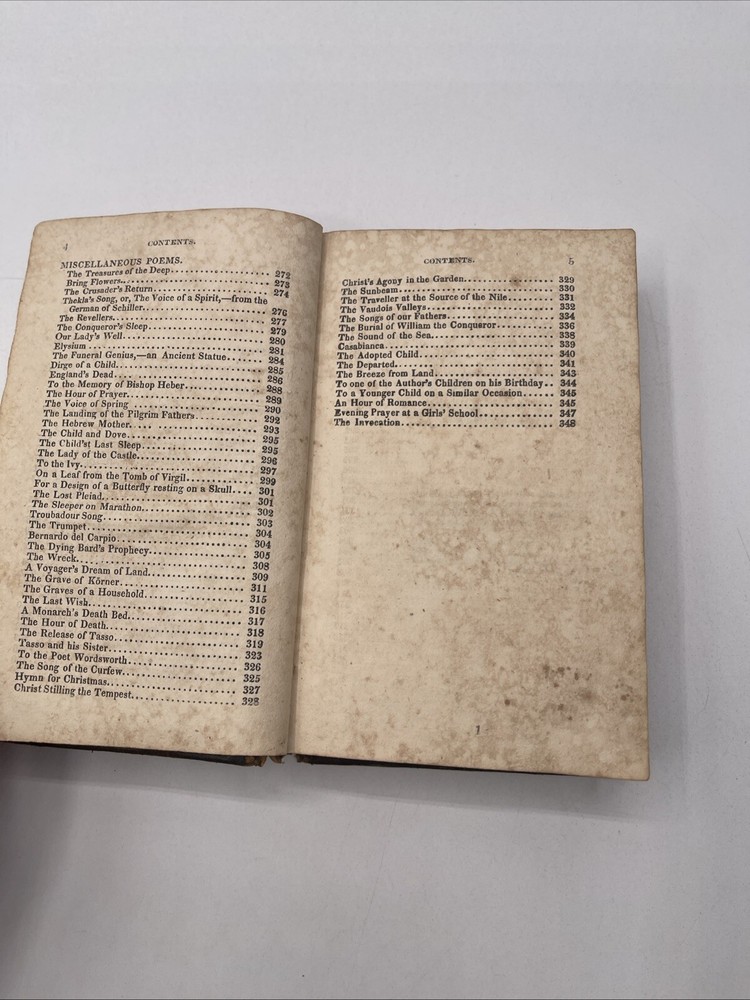 4 CONTENTS.
MISCELLANEOUS POEMS.
The Treasures of the Deep.................. 272
Bring Flowers.................. 273
The Crusader's Return.................. 274
Thekla's Song, or, The Voice of a Spirit,—from the
German of Schiller.................. 276
The Revellers.................. 277
The Conqueror's Sleep.................. 279
Our Lady's Well.................. 280
Elysium.................. 281
The Funeral Genius,—an Ancient Statue.................. 284
Dirge of a Child.................. 285
England's Dead.................. 286
To the Memory of Bishop Heber.................. 288
The Hour of Prayer.................. 289
The Voice of Spring.................. 290
The Landing of the Pilgrim Fathers.................. 292
The Hebrew Mother.................. 293
The Child and Dove.................. 295
The Child'st Last Sleep.................. 295
The Lady of the Castle.................. 296
To the Ivy.................. 297
On a Leaf from the Tomb of Virgil.................. 299
For a Design of a Butterfly resting on a Skull.... 301
The Lost Pleiad.................. 301
The Sleeper on Marathon.................. 302
Troubadour Song.................. 303
The Trumpet.................. 304
Bernardo del Carpio.................. 304
The Dying Bard's Prophecy.................. 305
The Wreck.................. 308
A Voyager's Dream of Land.................. 309
The Grave of Körner.................. 311
The Graves of a Household.................. 315
The Last Wish.................. 316
A Monarch's Death Bed.................. 317
The Hour of Death.................. 318
The Release of Tasso.................. 319
Tasso and his Sister.................. 323
To the Poet Wordsworth.................. 326
The Song of the Curfew.................. 325
Hymn for Christmas.................. 327
Christ Stilling the Tempest.................. 328
CONTENTS. 5
Christ's Agony in the Garden.................. 329
The Sunbeam.................. 330
The Traveller at the Source of the Nile.................. 331
The Vaudois Valleys.................. 332
The Songs of our Fathers.................. 334
The Burial of William the Conqueror.................. 336
The Sound of the Sea.................. 338
Casabianca.................. 339
The Adopted Child.................. 340
The Departed.................. 341
The Breeze from Land.................. 343
To one of the Author's Children on his Birthday.. 344
To a Younger Child on a Similar Occasion...... 345
An Hour of Romance.................. 345
Evening Prayer at a Girls' School.................. 347
The Invocation.................. 348
1